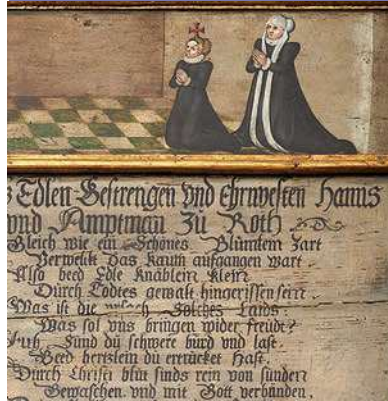 Edlen Gestrengen vnd ehrnvesten Hanns
vnd Amptman Zu Roth
Gleich wie ein Schönes Blümlem zart
Verwelckt Das kaum aufgangen wart
Also beed Edle Knäblein klein
Durch Todtes gewalt hingerissen sein.
Was ist die vrsach Solches Laids
Was sol vns bringen wider freudt?
Sünd du schwere bürd vnd last.
Beed hertzlein du errücket hast.
Durch Christi blut sinds rein von sünden
Gewaschen vnd mit Gott verbünden